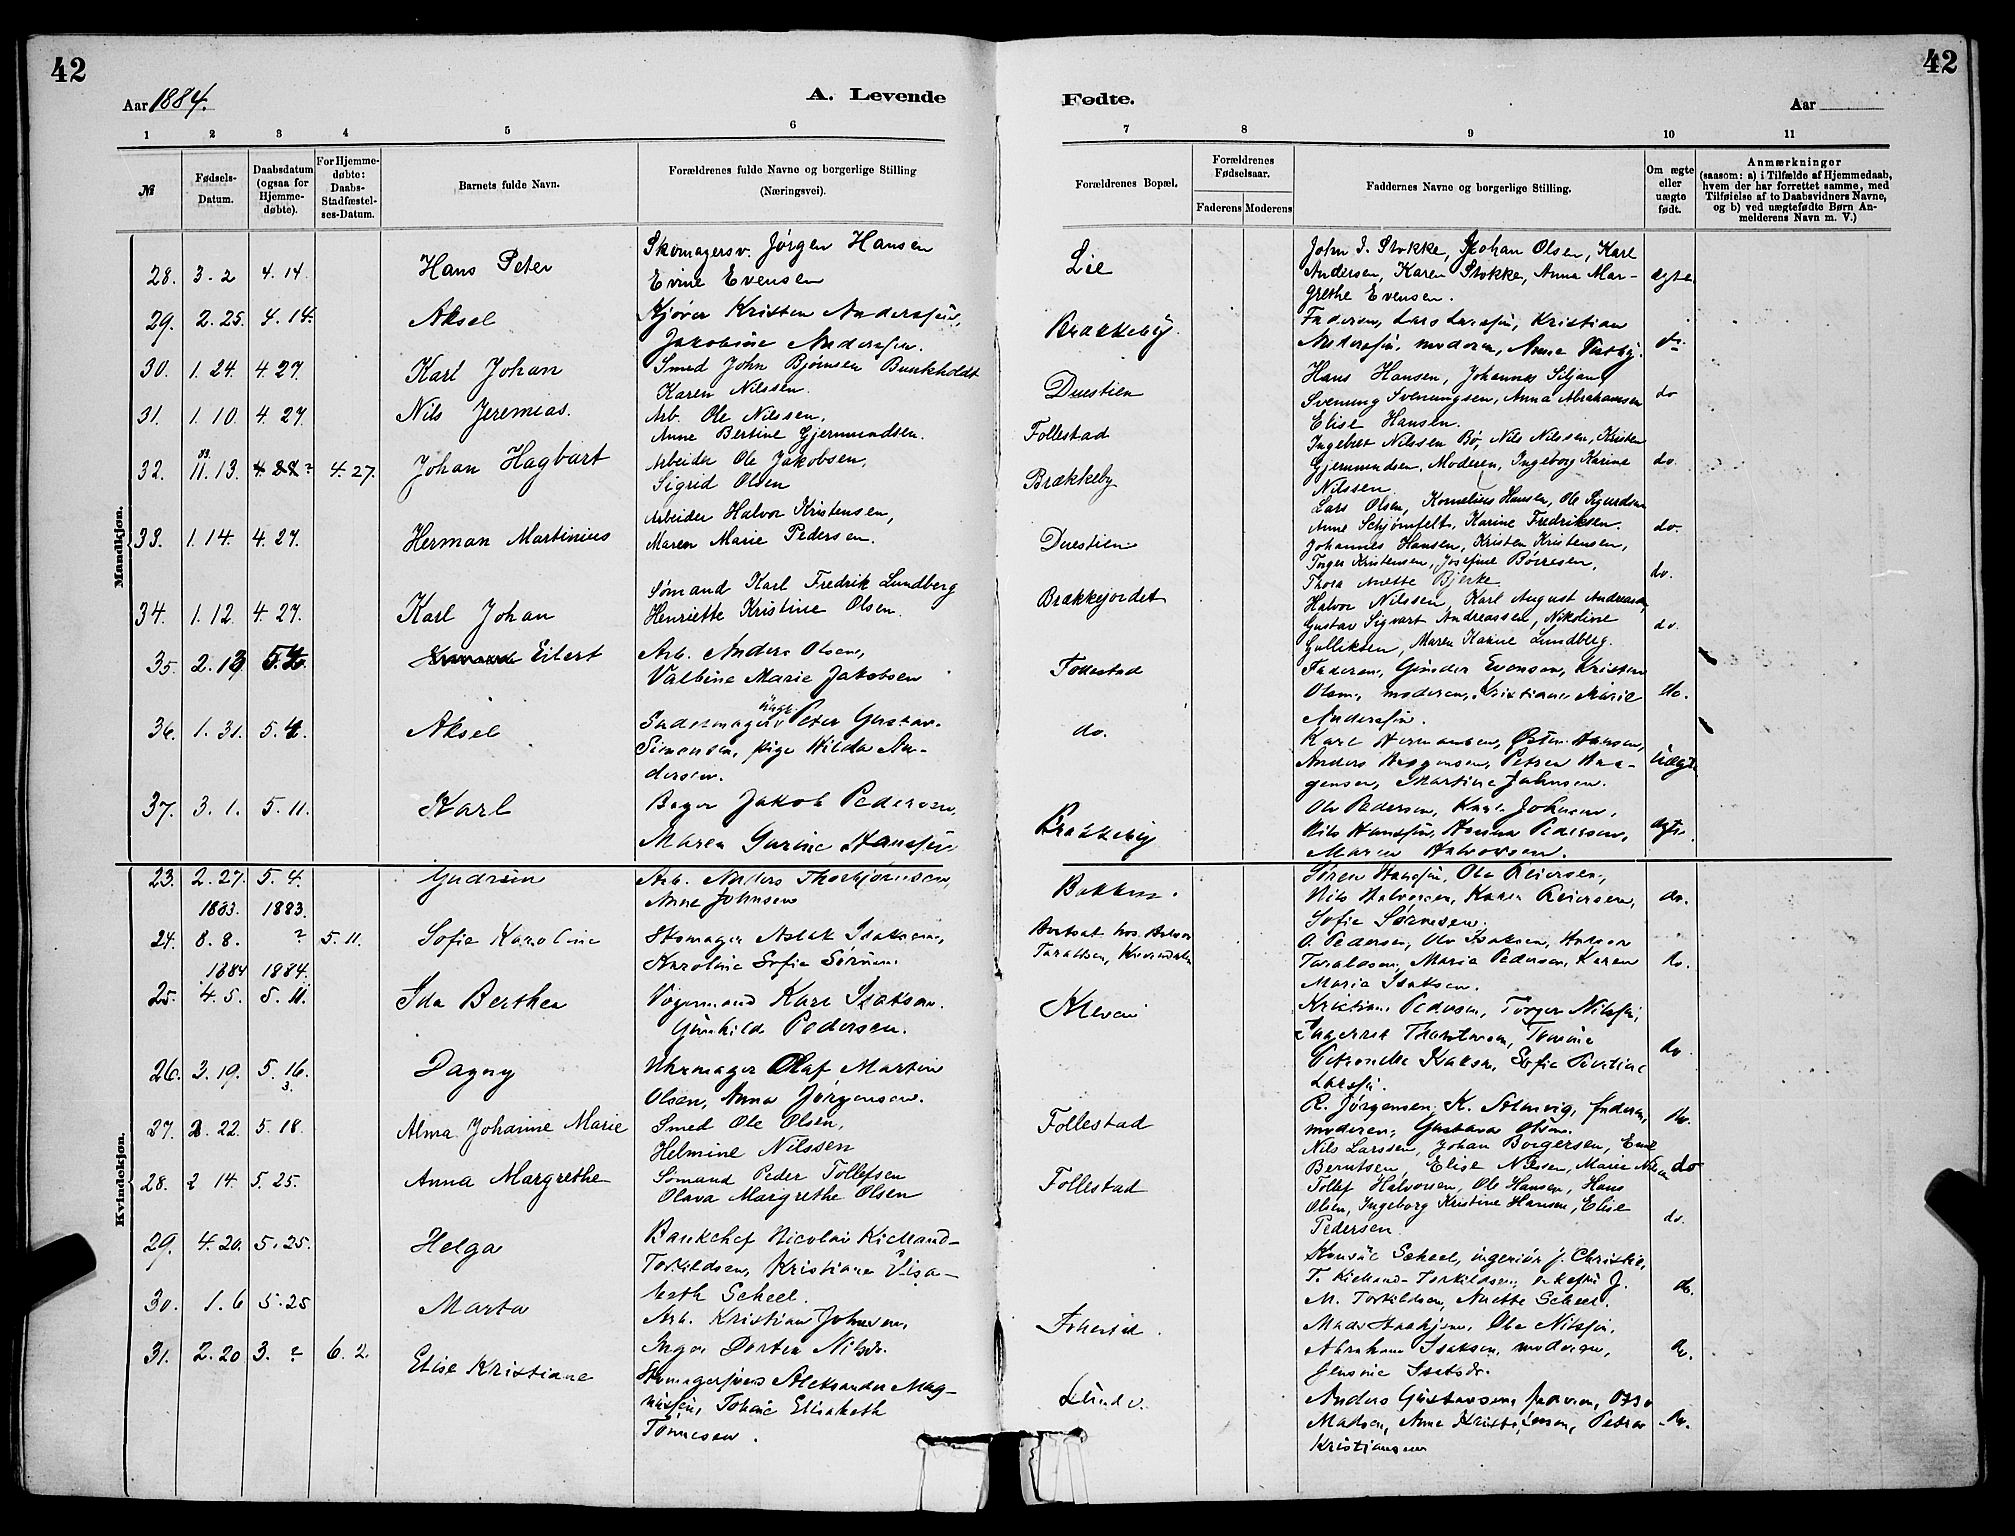 42
42
Aar 1884.
A. Levende
Fødte.
Aar
1 2 3 4 5 6
7 8 9 10 11
№
Fødsels-
Datum.
Daabsdatum
(ogsaa for
Hjemme-
døbte).
For Hjemme-
døbte:
Daabs-
Stadfæstel-
ses-Datum.
Barnets fulde Navn.
Forældrenes fulde Navne og borgerlige Stilling
(Næringsvei).
Forældrenes Bopæl.
Forældrenes
Fødselsaar.
Faderens Moderens
Faddernes Navne og borgerlige Stilling.
Om ægte
eller
uægte
født.
Anmærkninger
(saasom: a) i Tilfælde af Hjemmedaab,
hvem der har forrettet samme, med
Tilføielse af to Daabsvidners Navne,
og b) ved uægtefødte Børn An-
melderens Navn m. V.)
Mandkjøn.
28. 3. 2 4. 14. Hans Peter
Skomagersv. Jørgen Hansen
Evine Evensen
Lie
John J. Stokke, Johan Olsen, Karl
Andersen, Karen Stokke, Anna Mar-
grethe Evensen.
ægte
29. 2. 25. 4. 14. Aksel
Kjører Kristen Andersen,
Jakobine Andersen.
Brækkeby.
Faderen, Lars Larsen, Kristian
Andersen, moderen, Anne
do
30. 1. 24. 4. 27. Karl Johan
Smed John Bjørnsen Bunkholdt
Karen Nilssen.
Duestien
Hans Hansen, Johannes Siljan,
Svenung Svenungsen, Anna Abrahamsen
Elise Hansen.
do
31. 1. 10. 4. 27 Nils Jeremias.
Arb. Ole Nilssen,
Anne Bertine Gjermundsen.
Follestad
Ingebret Nilssen Bø, Nils Nilssen, Kristen
Gjermundsen, Moderen, Ingeborg Karine
Nilssen
do.
32. 83. 11. 13. ? 4. 27. Johan Hagbart
Arbeider Ole Jakobsen,
Sigrid Olsen
Brækkeby
Lars Olsen, Kornelius Hansen, Ole Sigurdsen
Anne Schjømfelt, Karine Fredriksen.
do.
33. 1. 14. 4. 27. Herman Martinius
Arbeider Halvor Kristensen,
Maren Marie Pedersen.
Duestien
Johannes Hansen, Kristen Kristensen,
Torger Kristensen, Josefine Børresen,
Thora Anette Bjerke
do.
34. 1. 12. 4. 27. Karl Johan
Sømand Karl Fredrik Lundberg
Henriette Kristine Olsen.
Brækkejordet
Halvor Nilssen, Karl August Andreasen,
Gustav Sigvart Andreassen, Nikoline
Gulliksen, Maren Karine Lundberg.
do.
35. 2. 13 5. 4. Eilert
Arb. Anders Olsen,
Valbine Marie Jakobsen
Follestad
Faderen, Gunder Evensen, Kristen
Olsen, moderen, Kristiane Marie
Andersen.
do.
36. 1. 31. 5. 4. Aksel
Sadelmager Peter Gustav
Simonsen, pige Hilda An-
dersen.
do.
Karl Hermansen, Østen Hansen,
Anders
Martine Johnsen.
uægte
37. 3. 1. 5. 11. Karl
Bager Jakob Pedersen,
Maren Gurine Hansen
Brækkeby
Ole Pedersen, Karl Johnsen,
Nils Hansen, Hanna Pedersen,
Maren Halvorsen.
ægte
Kvindekjøn.
23. 2. 27. 5. 4. Gudrun
Arb. Anders Thorbjørnsen,
Anne Johnsen
Bakken.
Søren Hansen, Ole Reiersen,
Nils Halvorsen, Karen Reiersen,
Sofie Sørensen.
do.
1883. 1883.
24. 8. 8. ? 5. 11. Sofie Karoline
Skomager Aslak Isaksen,
Karoline Sofie
Bortsat hos
Taraldsen,
A. Pedersen, Ole Isaksen, Halvor
Taraldsen, Marie Pedersen, Karen
Maria Isaksen.
do.
1884 1884.
25. 4. 5. 5. 11. Ida Berthea
Vognmand Karl Isaksen.
Gunhild Pedersen.
Kleven
Kristian Pedersen, Torger Nilsen,
Ingerid Torine
Petronelle Isaksen, Sofie
Larsen.
do.
26. 3. 19. 5. 16. Dagny
Uhrmager Olaf Martin
Olsen, Anna Jørgensen.
R. Jørgensen, K. faderen,
moderen, Gustava Olsen.
do.
27. 3. 22. 5. 18. Alma Johanne Marie
Smed Ole Olsen,
Helmine Nilssen
Follestad
Nils Larssen, Johan Borgersen, Emil
Berntsen, Elise Nilsen, Marie Nilsen
do
28. 2 14. 5. 25. Anna Margrethe
Sømand Peder Tollefsen
Olava Margrethe Olsen
Follestad
Tollef Halvorsen, Ole Hansen, Hans
Olsen, Ingeborg Kristine Hansen, Elise
Pedersen
do.
29. 4. 20. 5. 25. Helga
Bankchef Nicolai Kielland-
Torkildsen, Kristiane Elisa-
beth Scheel.
Konsul Scheel, ingeniør J. Christie,
T. Kielland-Torkildsen, J.
M. Torkildsen, Anette Scheel.
do.
30. 1. 6 5. 25 Marta
Arb. Kristian Johnsen,
Inger Dortea Nilsdr.
Follestad.
Mads Ole Nilsen,
Abraham Isaksen, moderen,
Isaksdr.
do.
31. 2. 20 3. ? 6. 2. Elise Kristiane
Skomagersvend Aleksander Mag-
nussen, Tomine Elisabeth
Tønnesen.
Lunde.
Anders Gustavsen, faderen,
Madsen, Anne Petra
Kristiansen
do.